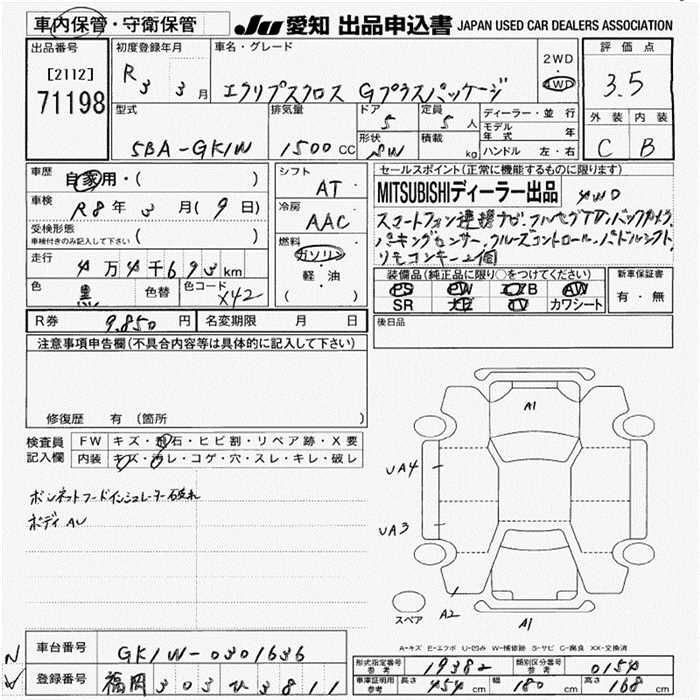 車内保管・守衛保管
JU 愛知 出品申込書 JAPAN USED CAR DEALERS ASSOCIATION
出品番号
[2112]
71198
初度登録年月
R 3 3 月
車名・グレード
エクリプスクロス Gプラスパッケージ
2WD
・
4WD
評価点
3.5
外装 内装
C B
型式
5BA-GK1W
排気量
1500 CC
ドア
5
形状
SW
定員
5 人
積載
kg
ディーラー・並行
モデル年式 年
ハンドル 左・右
車歴
自家用・( )
車検
R8年 3月(9日)
受検形態
車検付きのみ記入して下さい ( )
走行
4万4千693km
色
黒
色替
色コード
X42
シフト
AT
冷房
AAC
燃料
ガソリン
軽・油
( )
セールスポイント(正常に機能するものに限ります)
MITSUBISHIディーラー出品 4WD
スマートフォン連携ナビ・フルセグTV・バックカメラ
パーキングセンサー・クルーズコントロール・パドルシフト
リモコンキー2個
装備品(純正品に限り○をつけてください)
PS PW エアB AW
SR カワシート
新車保証書
有・無
R券 9,850 円
名変期限 月 日
後日品
注意事項申告欄(不具合内容等は具体的に記入して下さい)
修復歴 有 (箇所 )
検査員記入欄
FW キズ・飛石・ヒビ割・リペア跡・X要
内装 キズ・汚レ・コゲ・穴・スレ・キレ・破レ
ボンネットフードインシュレーター破れ
ボディAU
A1
UA4
UA3
スペア
A2
A1
A-キズ E-エクボ U-凹み W-補修跡 S-サビ C-腐食 XX-交換済
車台番号
GK1W-0301636
登録番号
福岡 303 ひ 3811
形式指定番号 参考 19382
類別区分番号 参考 0154
車庫証明用 参考 長さ 454 cm 幅 180 cm 高さ 168 cm